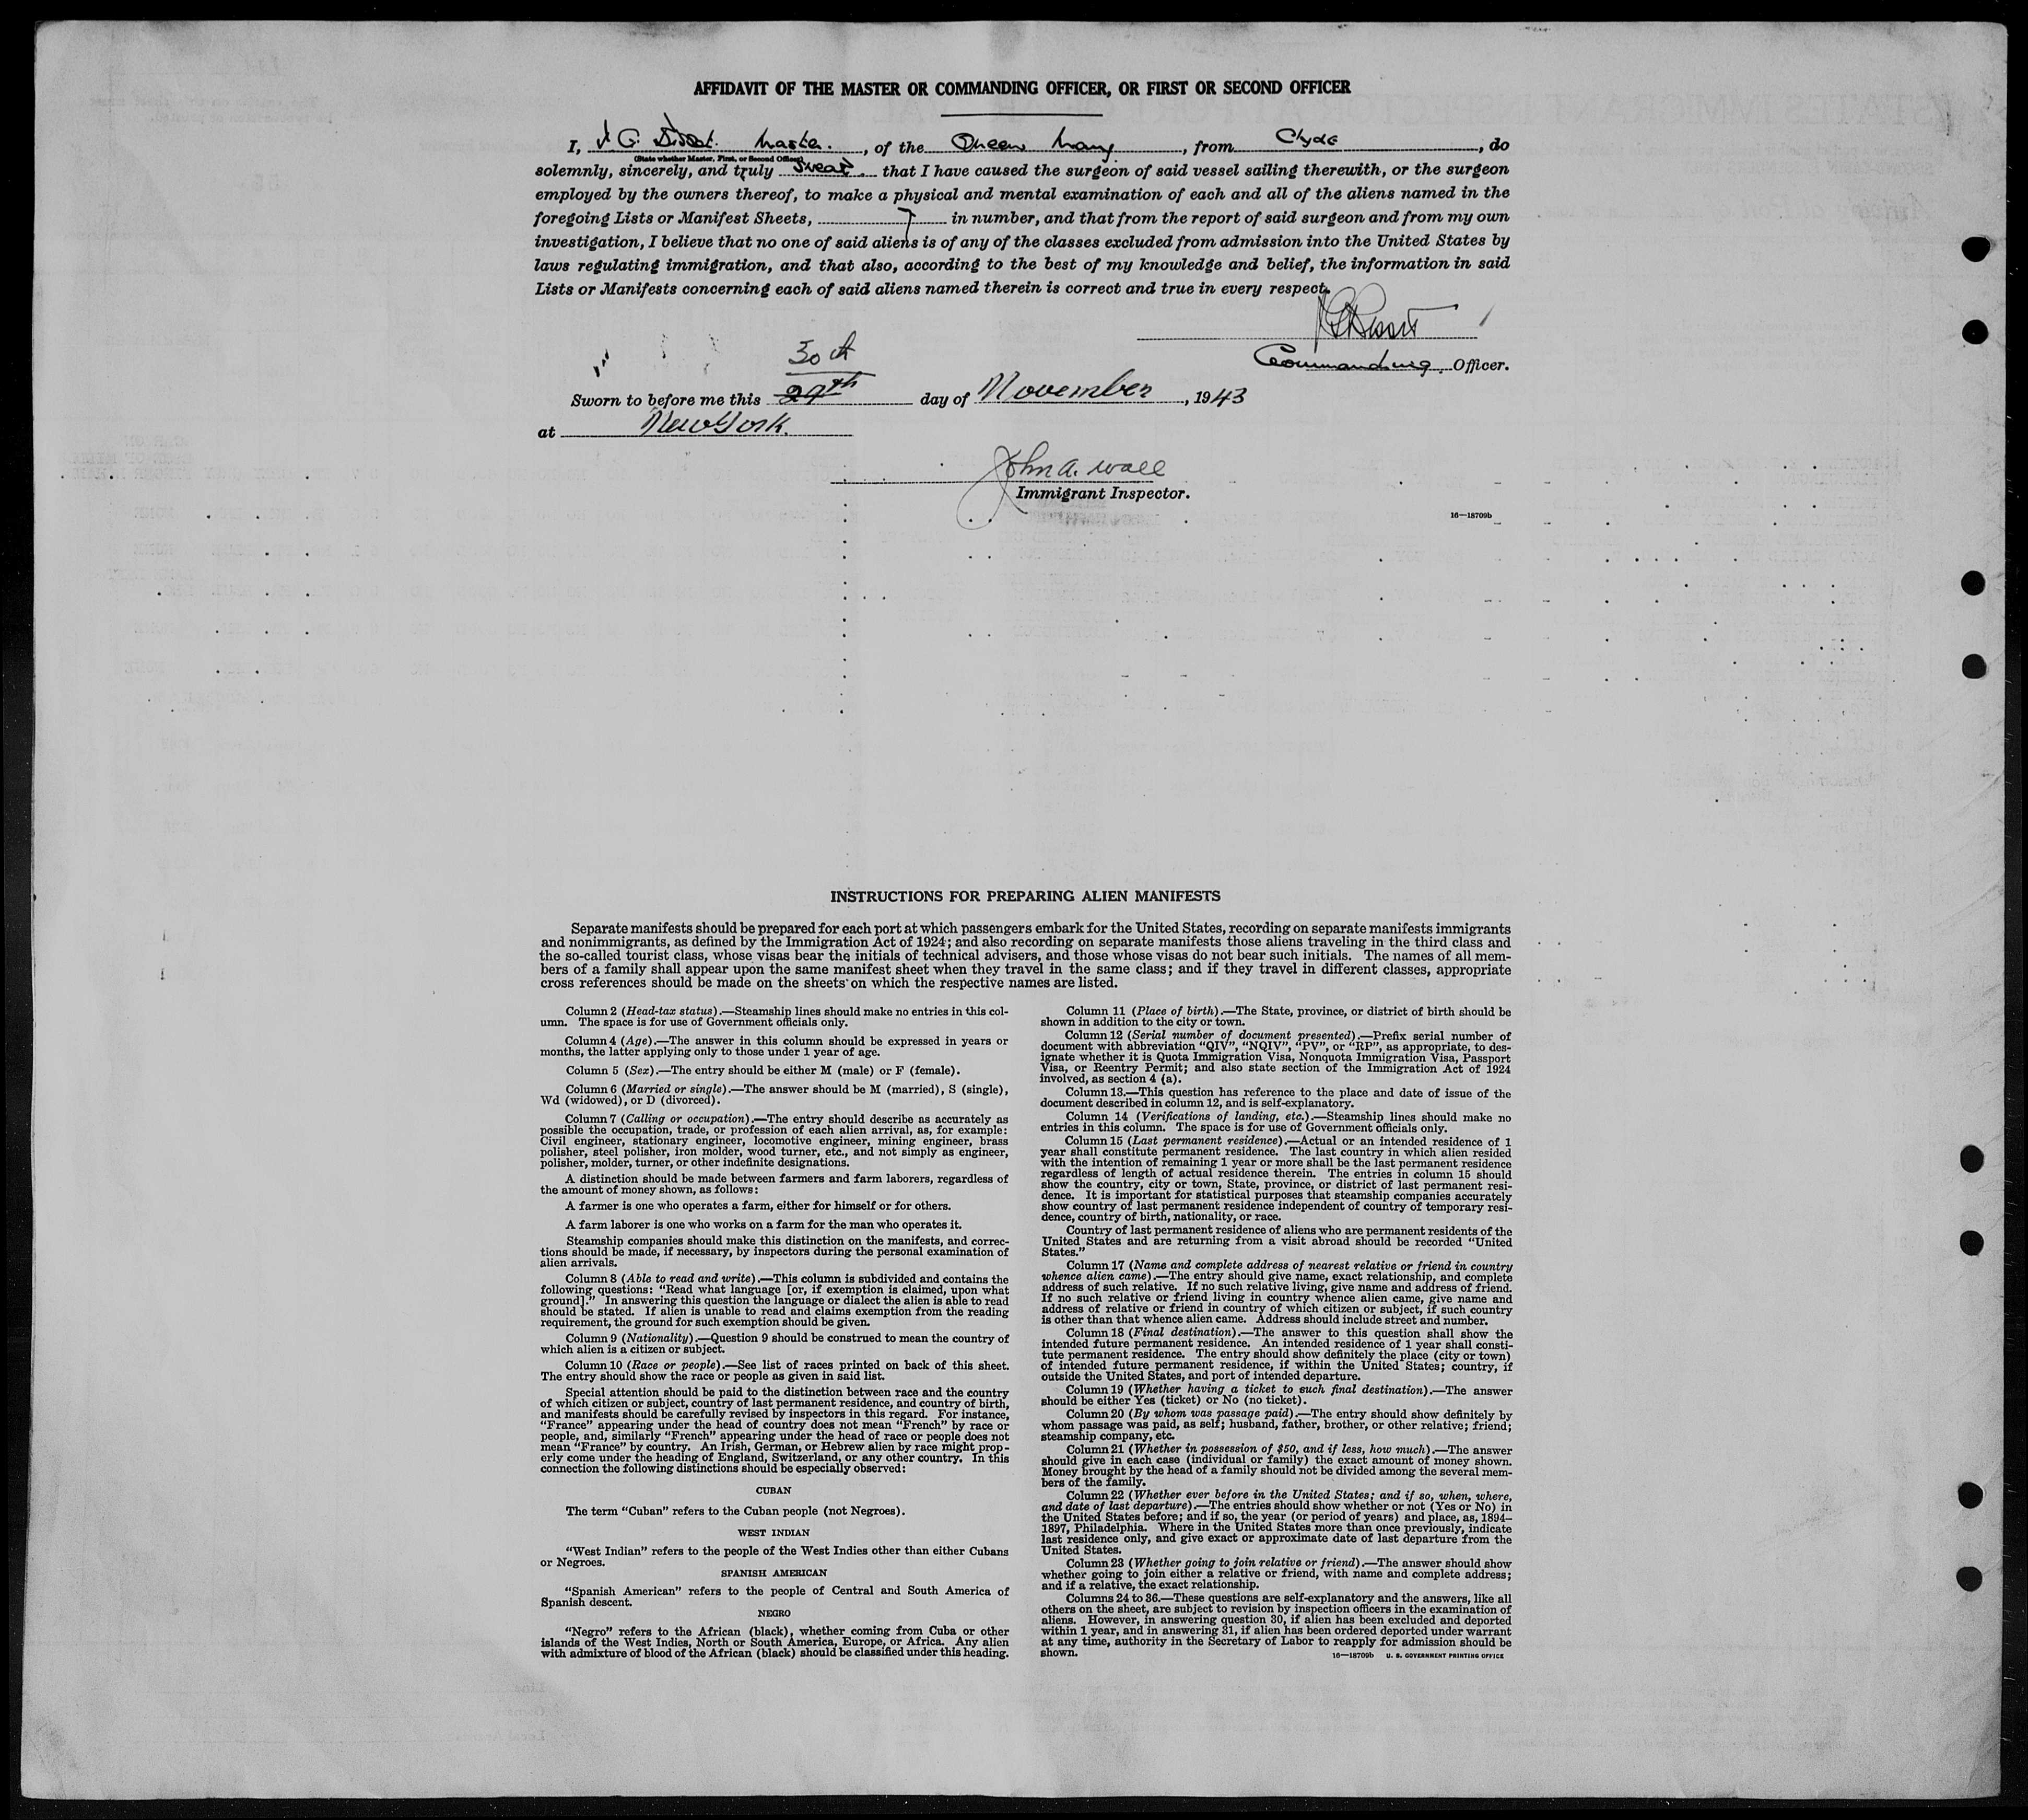 AFFIDAVIT OF THE MASTER OR COMMANDING OFFICER, OR FIRST OR SECOND OFFICER
I, J. G. Bisset. Master. , of the Queen Mary , from Clyde , do
(State whether Master, First, or Second Officer)
solemnly, sincerely, and truly swear that I have caused the surgeon of said vessel sailing therewith, or the surgeon
employed by the owners thereof, to make a physical and mental examination of each and all of the aliens named in the
foregoing Lists or Manifest Sheets, 7 in number, and that from the report of said surgeon and from my own
investigation, I believe that no one of said aliens is of any of the classes excluded from admission into the United States by
laws regulating immigration, and that also, according to the best of my knowledge and belief, the information in said
Lists or Manifests concerning each of said aliens named therein is correct and true in every respect.
Commanding Officer.
30th
Sworn to before me this 29th day of November , 1943
at New York.
John A. Wall
Immigrant Inspector.
16—18709b
INSTRUCTIONS FOR PREPARING ALIEN MANIFESTS
Separate manifests should be prepared for each port at which passengers embark for the United States, recording on separate manifests immigrants
and nonimmigrants, as defined by the Immigration Act of 1924; and also recording on separate manifests those aliens traveling in the third class and
the so-called tourist class, whose visas bear the initials of technical advisers, and those whose visas do not bear such initials. The names of all mem-
bers of a family shall appear upon the same manifest sheet when they travel in the same class; and if they travel in different classes, appropriate
cross references should be made on the sheets on which the respective names are listed.
Column 2 (Head-tax status).—Steamship lines should make no entries in this col-
umn. The space is for use of Government officials only.
Column 4 (Age).—The answer in this column should be expressed in years or
months, the latter applying only to those under 1 year of age.
Column 5 (Sex).—The entry should be either M (male) or F (female).
Column 6 (Married or single).—The answer should be M (married), S (single),
Wd (widowed), or D (divorced).
Column 7 (Calling or occupation).—The entry should describe as accurately as
possible the occupation, trade, or profession of each alien arrival, as, for example:
Civil engineer, stationary engineer, locomotive engineer, mining engineer, brass
polisher, steel polisher, iron molder, wood turner, etc., and not simply as engineer,
polisher, molder, turner, or other indefinite designations.
A distinction should be made between farmers and farm laborers, regardless of
the amount of money shown, as follows:
A farmer is one who operates a farm, either for himself or for others.
A farm laborer is one who works on a farm for the man who operates it.
Steamship companies should make this distinction on the manifests, and correc-
tions should be made, if necessary, by inspectors during the personal examination of
alien arrivals.
Column 8 (Able to read and write).—This column is subdivided and contains the
following questions: "Read what language [or, if exemption is claimed, upon what
ground]." In answering this question the language or dialect the alien is able to read
should be stated. If alien is unable to read and claims exemption from the reading
requirement, the ground for such exemption should be given.
Column 9 (Nationality).—Question 9 should be construed to mean the country of
which alien is a citizen or subject.
Column 10 (Race or people).—See list of races printed on back of this sheet.
The entry should show the race or people as given in said list.
Special attention should be paid to the distinction between race and the country
of which citizen or subject, country of last permanent residence, and country of birth,
and manifests should be carefully revised by inspectors in this regard. For instance,
"France" appearing under the head of country does not mean "French" by race or
people, and, similarly "French" appearing under the head of race or people does not
mean "France" by country. An Irish, German, or Hebrew alien by race might prop-
erly come under the heading of England, Switzerland, or any other country. In this
connection the following distinctions should be especially observed:
CUBAN
The term "Cuban" refers to the Cuban people (not Negroes).
WEST INDIAN
"West Indian" refers to the people of the West Indies other than either Cubans
or Negroes.
SPANISH AMERICAN
"Spanish American" refers to the people of Central and South America of
Spanish descent.
NEGRO
"Negro" refers to the African (black), whether coming from Cuba or other
islands of the West Indies, North or South America, Europe, or Africa. Any alien
with admixture of blood of the African (black) should be classified under this heading.
Column 11 (Place of birth).—The State, province, or district of birth should be
shown in addition to the city or town.
Column 12 (Serial number of document presented).—Prefix serial number of
document with abbreviation "QIV", "NQIV", "PV", or "RP", as appropriate, to des-
ignate whether it is Quota Immigration Visa, Nonquota Immigration Visa, Passport
Visa, or Reentry Permit; and also state section of the Immigration Act of 1924
involved, as section 4 (a).
Column 13.—This question has reference to the place and date of issue of the
document described in column 12, and is self-explanatory.
Column 14 (Verifications of landing, etc.).—Steamship lines should make no
entries in this column. The space is for use of Government officials only.
Column 15 (Last permanent residence).—Actual or an intended residence of 1
year shall constitute permanent residence. The last country in which alien resided
with the intention of remaining 1 year or more shall be the last permanent residence
regardless of length of actual residence therein. The entries in column 15 should
show the country, city or town, State, province, or district of last permanent resi-
dence. It is important for statistical purposes that steamship companies accurately
show country of last permanent residence independent of country of temporary resi-
dence, country of birth, nationality, or race.
Country of last permanent residence of aliens who are permanent residents of the
United States and are returning from a visit abroad should be recorded "United
States."
Column 17 (Name and complete address of nearest relative or friend in country
whence alien came).—The entry should give name, exact relationship, and complete
address of such relative. If no such relative living, give name and address of friend.
If no such relative or friend living in country whence alien came, give name and
address of relative or friend in country of which citizen or subject, if such country
is other than that whence alien came. Address should include street and number.
Column 18 (Final destination).—The answer to this question shall show the
intended future permanent residence. An intended residence of 1 year shall consti-
tute permanent residence. The entry should show definitely the place (city or town)
of intended future permanent residence, if within the United States; country, if
outside the United States, and port of intended departure.
Column 19 (Whether having a ticket to such final destination).—The answer
should be either Yes (ticket) or No (no ticket).
Column 20 (By whom was passage paid).—The entry should show definitely by
whom passage was paid, as self; husband, father, brother, or other relative; friend;
steamship company, etc.
Column 21 (Whether in possession of $50, and if less, how much).—The answer
should give in each case (individual or family) the exact amount of money shown.
Money brought by the head of a family should not be divided among the several mem-
bers of the family.
Column 22 (Whether ever before in the United States; and if so, when, where,
and date of last departure).—The entries should show whether or not (Yes or No) in
the United States before; and if so, the year (or period of years) and place, as, 1894–
1897, Philadelphia. Where in the United States more than once previously, indicate
last residence only, and give exact or approximate date of last departure from the
United States.
Column 23 (Whether going to join relative or friend).—The answer should show
whether going to join either a relative or friend, with name and complete address;
and if a relative, the exact relationship.
Columns 24 to 36.—These questions are self-explanatory and the answers, like all
others on the sheet, are subject to revision by inspection officers in the examination of
aliens. However, in answering question 30, if alien has been excluded and deported
within 1 year, and in answering 31, if alien has been ordered deported under warrant
at any time, authority in the Secretary of Labor to reapply for admission should be
shown.
16—18709b U. S. GOVERNMENT PRINTING OFFICE